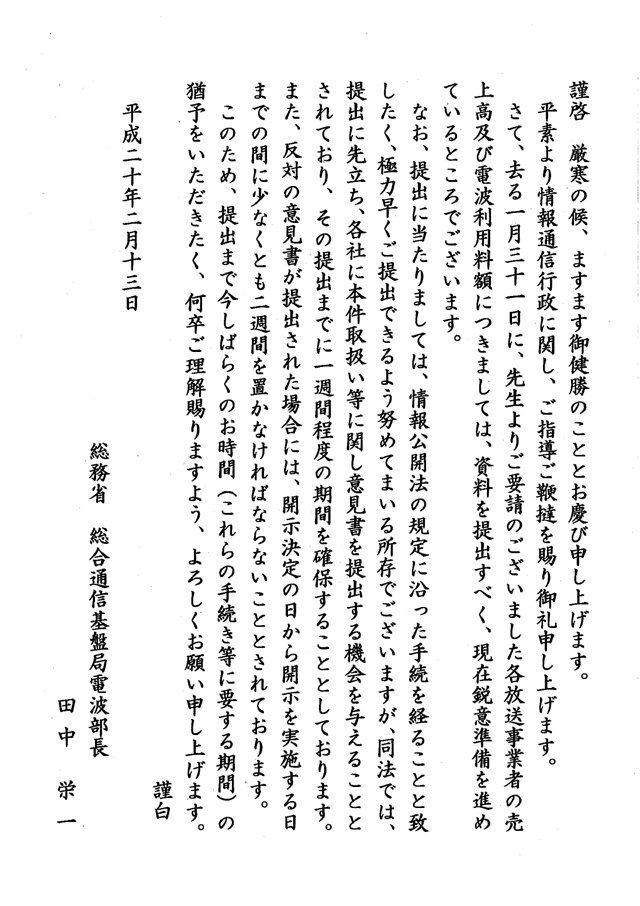 謹啓　厳寒の候、ますます御健勝のこととお慶び申し上げます。
平素より情報通信行政に関し、ご指導ご鞭撻を賜り御礼申し上げます。
さて、去る一月三十一日に、先生よりご要請のございました各放送事業者の売
上高及び電波利用料額につきましては、資料を提出すべく、現在鋭意準備を進め
ているところでございます。
なお、提出に当たりましては、情報公開法の規定に沿った手続を経ることと致
したく、極力早くご提出できるよう努めてまいる所存でございますが、同法では、
提出に先立ち、各社に本件取扱い等に関し意見書を提出する機会を与えることと
されており、その提出までに一週間程度の期間を確保することとしております。
また、反対の意見書が提出された場合には、開示決定の日から開示を実施する日
までの間に少なくとも二週間を置かなければならないこととされております。
このため、提出まで今しばらくのお時間（これらの手続き等に要する期間）の
猶予をいただきたく、何卒ご理解賜りますよう、よろしくお願い申し上げます。
謹白
平成二十年二月十三日
総務省　総合通信基盤局電波部長
田中　栄一